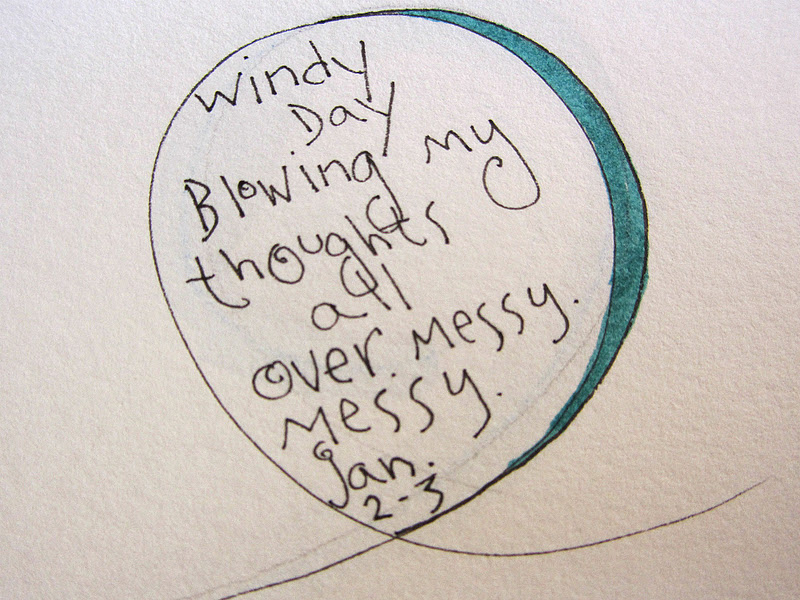 windy
Day
Blowing my
thoughts
all
over. Messy.
Messy.
Jan.
2-3